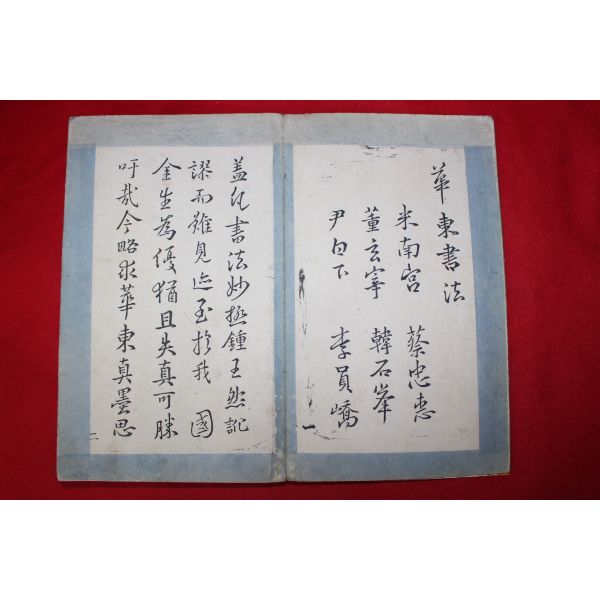 華東書法
米南宮 蔡忠惠
董玄宰 韓石峯
尹白下 李員嶠
一
蓋凡書法妙極鍾王然訛
謬而難見迹至於我 國
金生為優猶且失真可勝
吁哉今略求華東真墨思
二